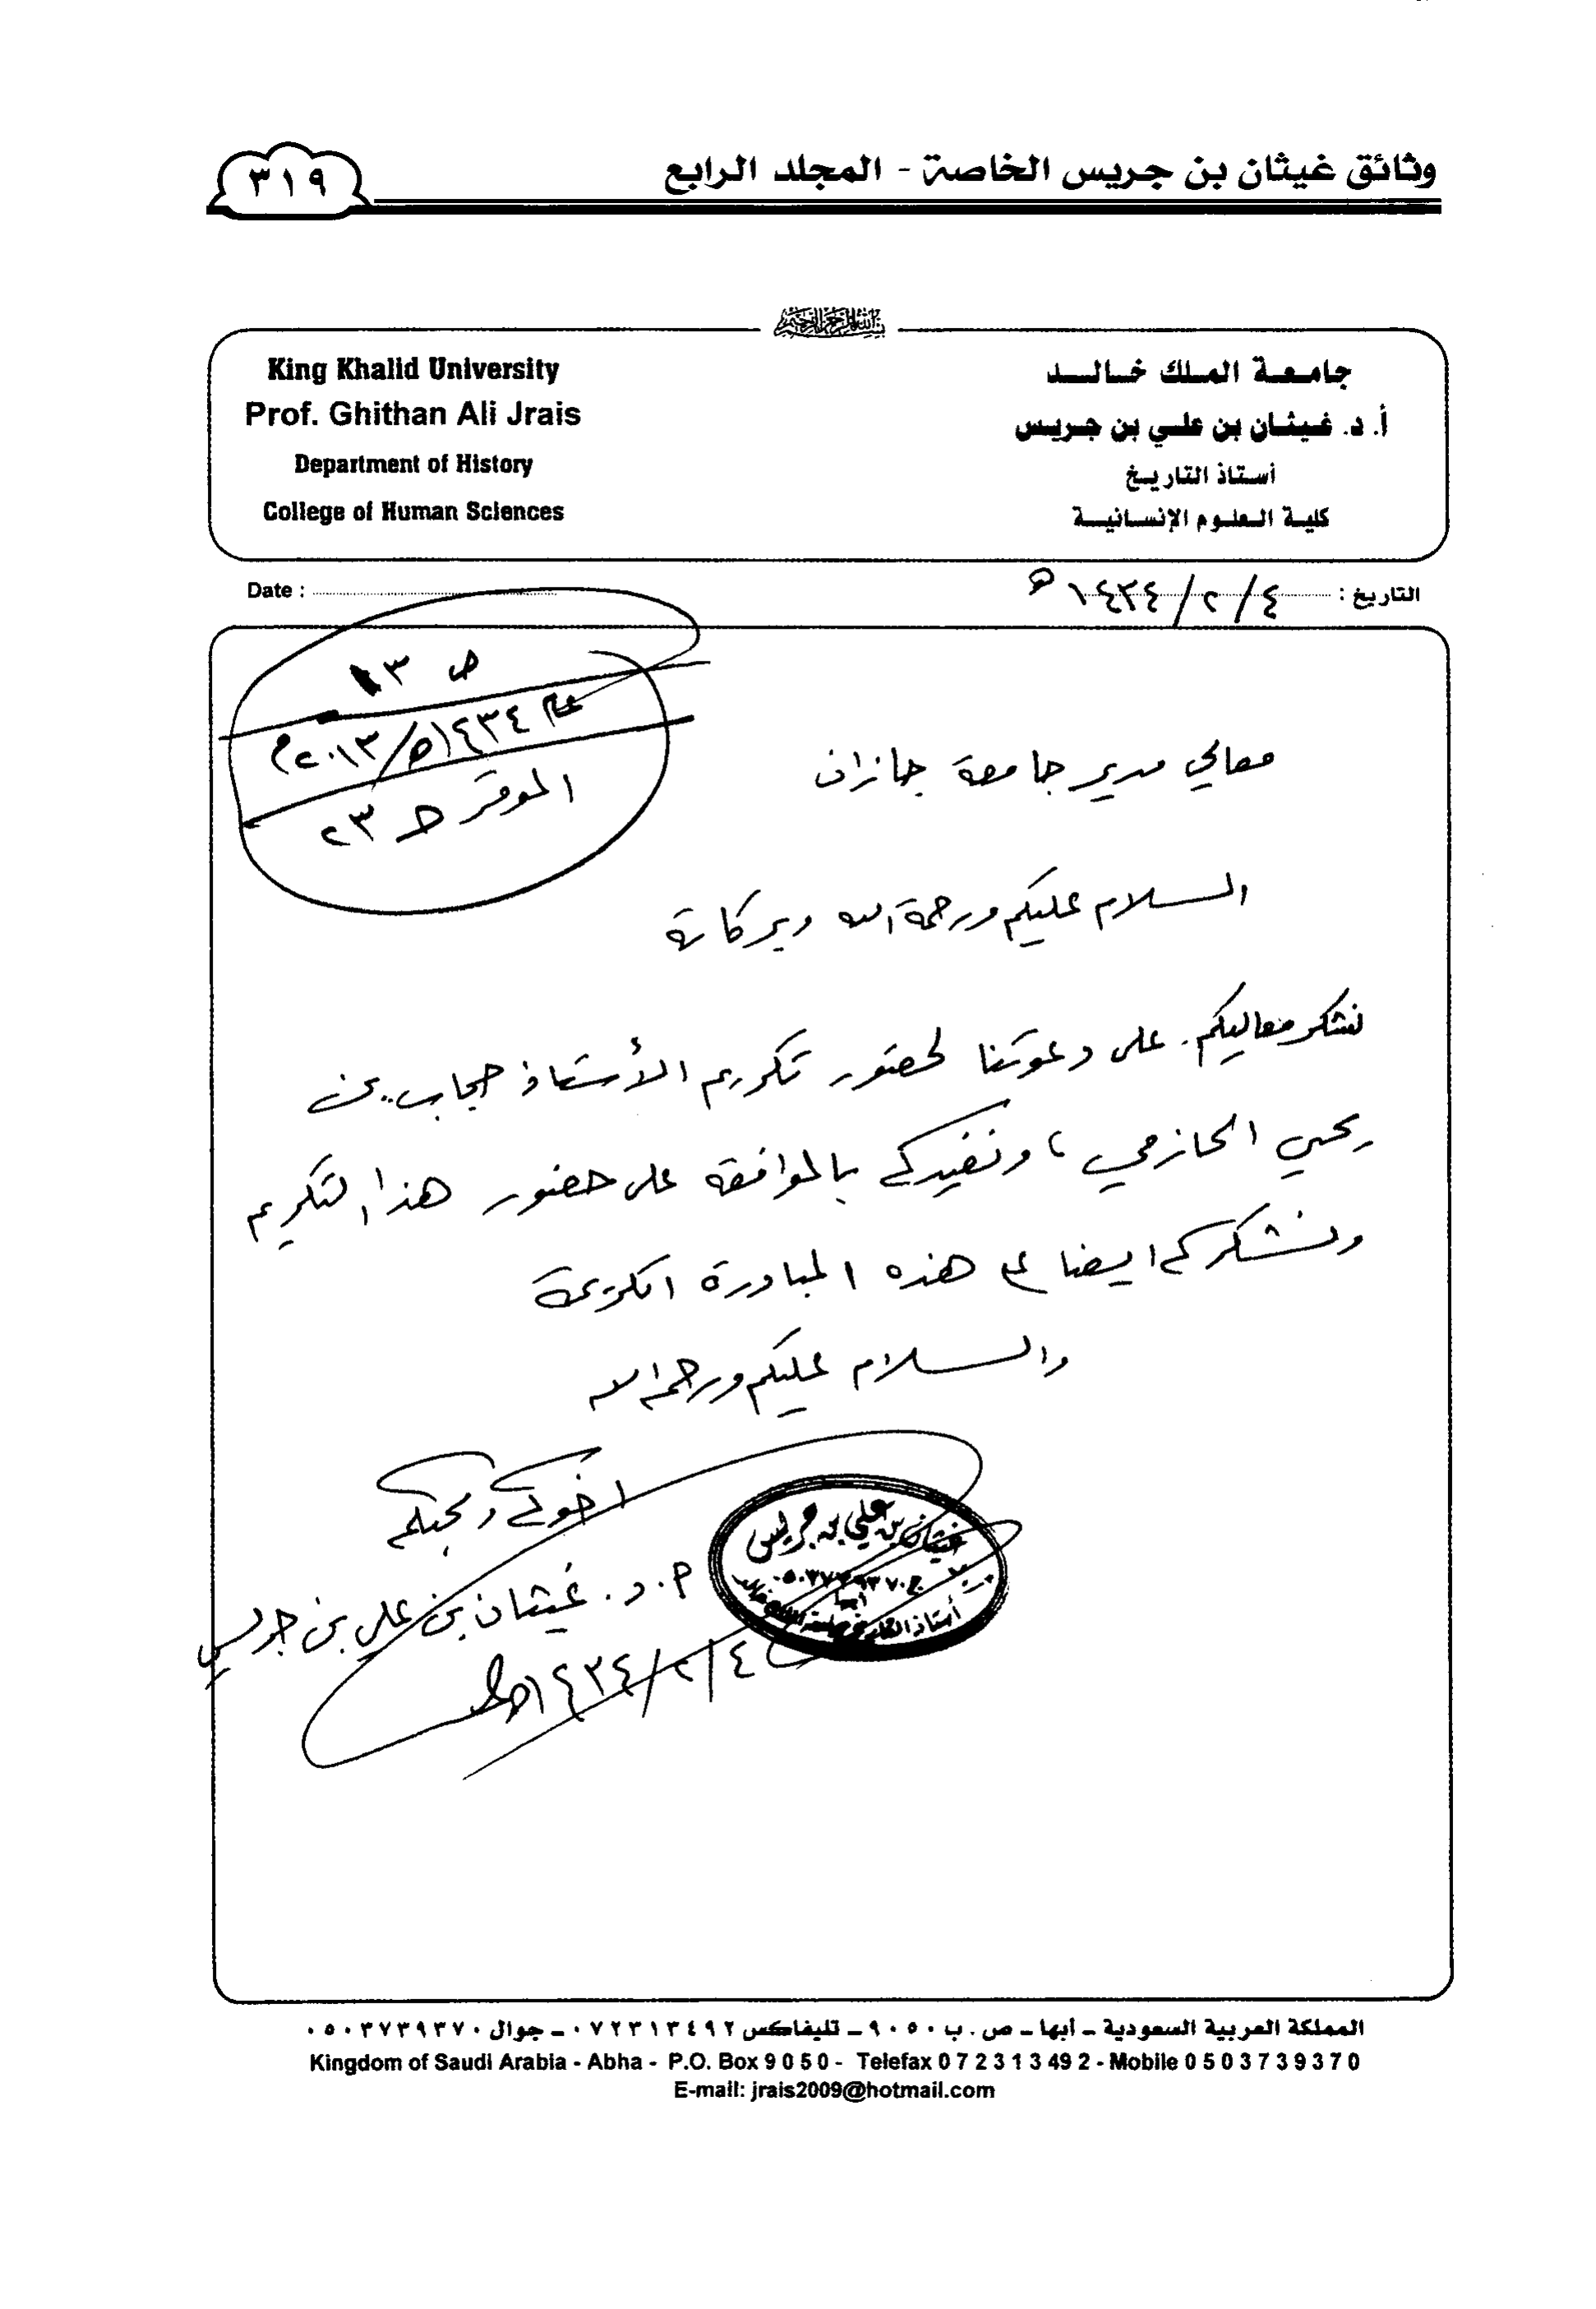 وثائق غيثان بن جريس الخاصة - المجلد الرابع
٣١٩
بسم الله الرحمن الرحيم
جامعة الملك خالد
أ. د. غيثان بن علي بن جريس
أستاذ التاريخ
كلية العلوم الإنسانية
King Khalid University
Prof. Ghithan Ali Jrais
Department of History
College of Human Sciences
التاريخ : ٤/٢/١٤٣٤هـ
Date :
ص ١٣
عام ١٤٣٤هـ/٢٠١٣م
معالي مدير جامعة جازان الموقر ط ٢٣
السلام عليكم ورحمة الله وبركاته
نشكر معاليكم. على دعوتنا لحضور تكريم الأستاذ حجاب بن
يحيي الحازمي، ونفيدكم بالموافقة على حضور هذا التكريم
ونشكركم ايضا على هذه المبادرة الكريمة
والسلام عليكم ورحمة الله
اخوكم ومحبكم
أ. د. غيثان بن علي بن جريس
٤/٢/١٤٣٤هـ
غيثان بن علي بن جريس
ج ٠٥٠٣٧٣٩٣٧٠
أبها
أستاذ التاريخ جامعة الملك خالد
المملكة العربية السعودية - أبها - ص . ب ٩٠٥٠ - تليفاكس ٠٧٢٣١٣٤٩٢ - جوال ٠٥٠٣٧٣٩٣٧٠
Kingdom of Saudi Arabia - Abha - P.O. Box 9 0 5 0 - Telefax 0 7 2 3 1 3 49 2 - Mobile 0 5 0 3 7 3 9 3 7 0
E-mail: jrais2009@hotmail.com